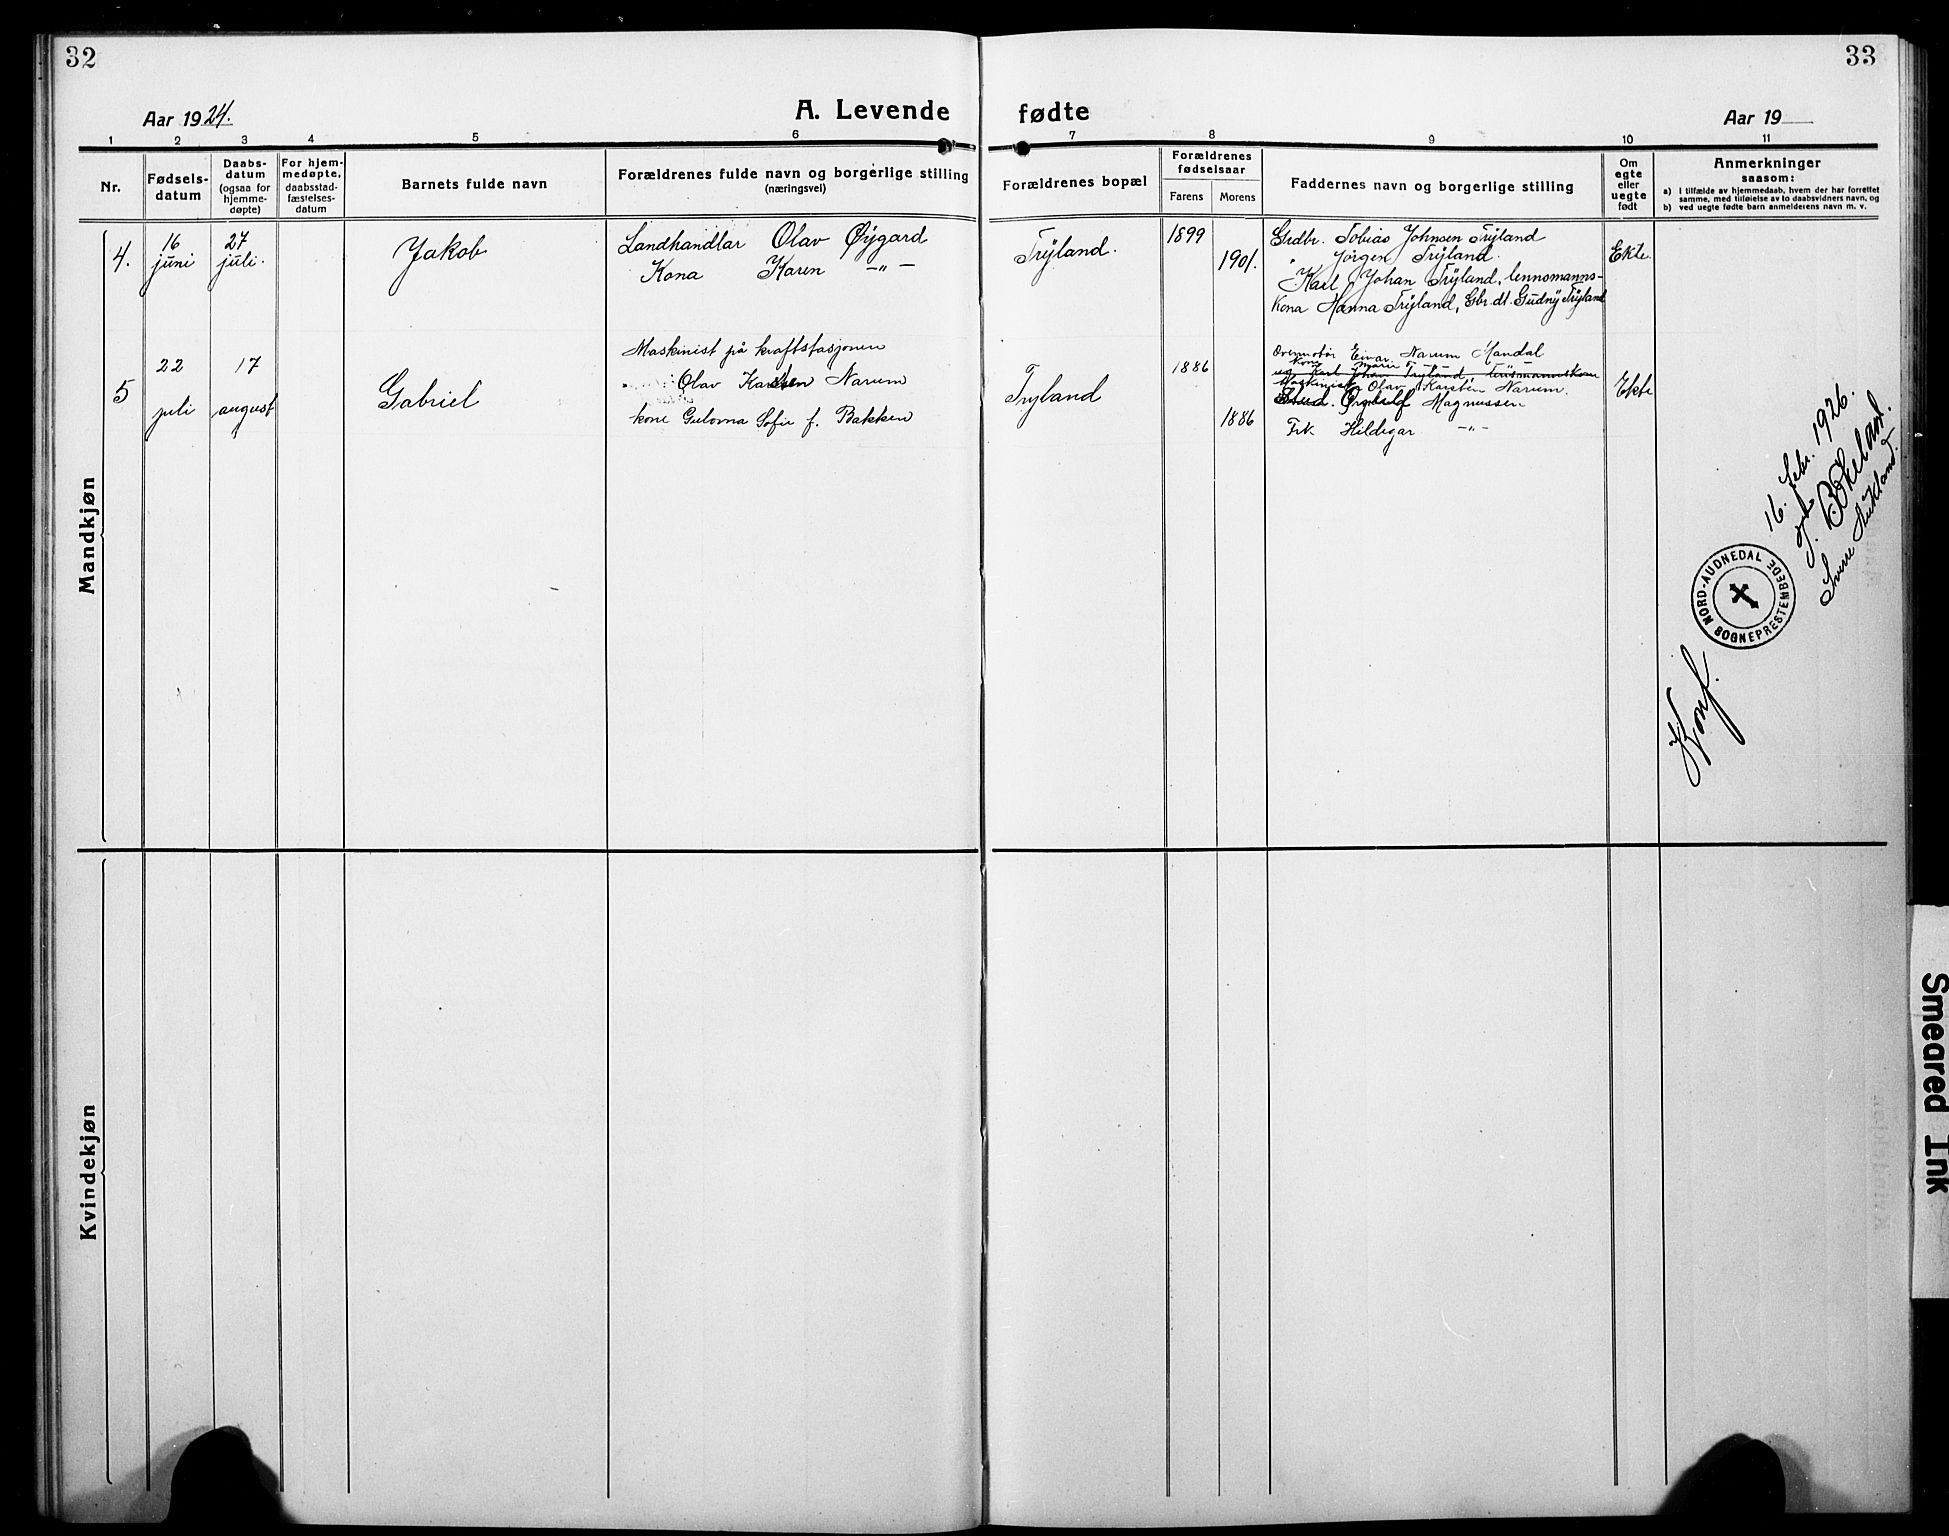 32
33
Aar 1924.
A. Levende fødte
Aar 19
1 2 3 4 5 6 7 8 9 10 11
Nr.
Fødsels-
datum
Daabs-
datum
(ogsaa for
hjemme-
døpte)
For hjem-
medøpte,
daabsstad-
fæstelses-
datum
Barnets fulde navn
Forældrenes fulde navn og borgerlige stilling
(næringsvei)
Forældrenes bopæl
Forældrenes
fødselsaar
Farens
Morens
Faddernes navn og borgerlige stilling
Om
egte
eller
uegte
født
Anmerkninger
saasom:
a) I tilfælde av hjemmedaab, hvem der har forrettet
samme, med tilføielse av to daabsvidners navn, og
b) ved uegte fødte barn anmelderens navn m. v.
Mandkjøn
4.
16
juni
27
juli.
Jakob
Landhandlar Olav Øygard
Kona Karen —"—
Trÿland.
1899
1901.
Grdbr. Tobias Johnsen Trÿland
" Jörgen Trÿland.
Karl Johan Trÿland, lennsmanns-
kona Hanna Trÿland, Gbr.dt. Gudnÿ Trÿland
Ekte.
5
22
juli
17
august
Gabriel
Maskinist på kraftstasjonen
Olav Karsten Narum
kone Gulovna Sofie f. Bakken
Tryland
1886
1886
Einar Narum Mandal
kone Marie —"—
Karl Johan Tryland
Maskinist Olav Karsten Narum.
Magnussen
Frk. Hildegar —"—
Ekte
Konf.
NORD-AUDNEDAL
SOGNEPRESTEMBEDE
16. febr. 1926.
J. Bökeland.
Sverre Aukland.
Kvindekjøn
Smeared Ink